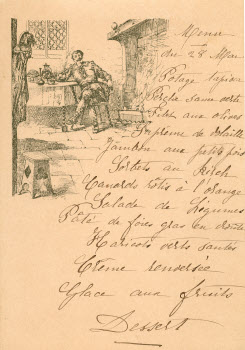 Menu
du 28 Mai
Potage tapioca
sauce verte
aux olives
Suprême de volaille
Jambon aux petits pois
Sorbets au kirsch
Canards rotis à l'orange
Salade de Légumes
Pâté de foies gras en croûte
Haricots verts sautés
Crème renversée
Glace aux fruits
Dessert